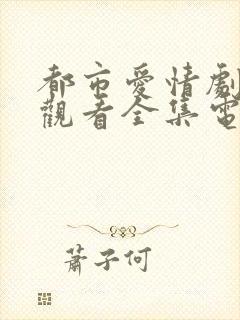 都市愛情劇
觀看全集電
蕭子何